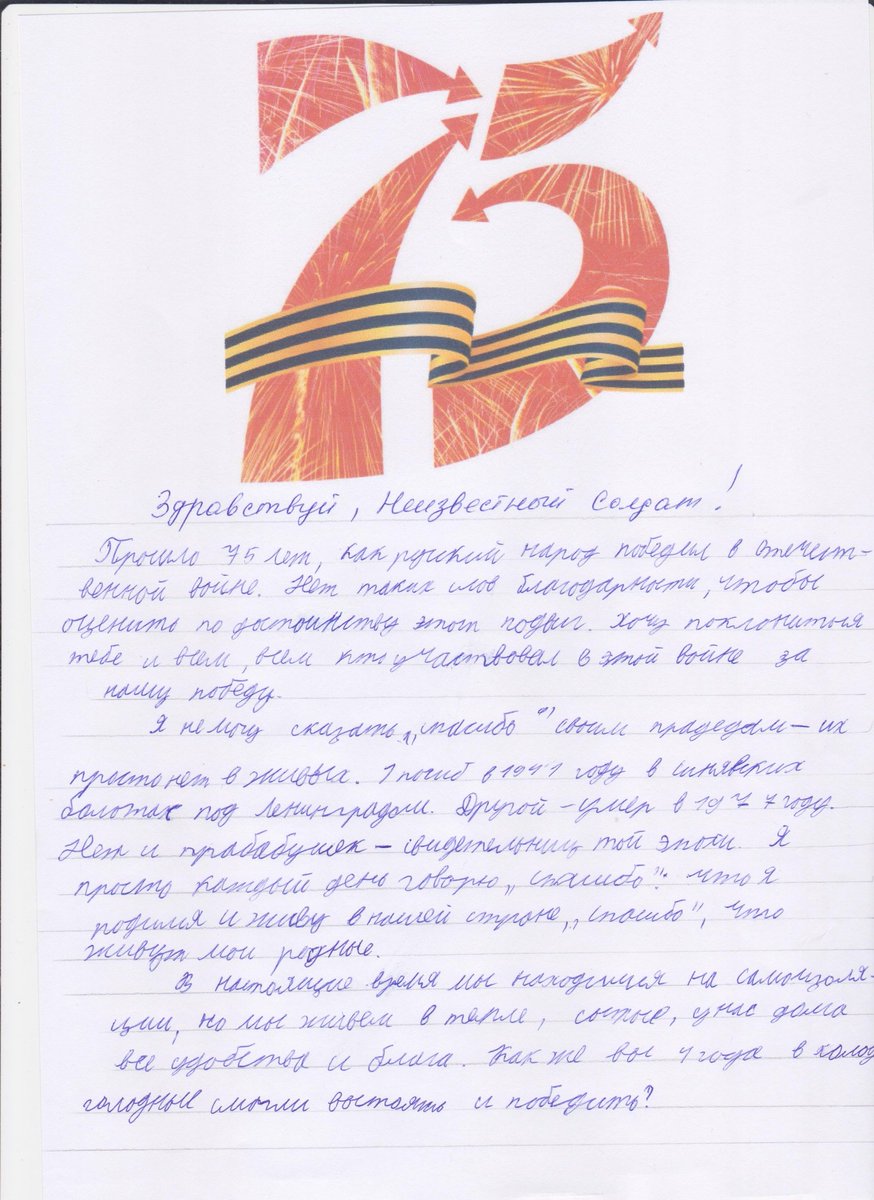 75
Здравствуй, Неизвестный Солдат!
Прошло 75 лет, как русский народ победил в отечест-
венной войне. Нет таких слов благодарности, чтобы
оценить по достоинству этот подвиг. Хочу поклониться
тебе и всем, всем кто участвовал в этой войне за
нашу победу.
Я не могу сказать „спасибо" своим прадедам – их
просто нет в живых. 1 погиб в 1941 году в синявских
болотах под Ленинградом. Другой – умер в 1977 году.
Нет и прабабушек – свидетельниц той эпохи. Я
просто каждый день говорю „спасибо": что я
родился и живу в нашей стране, „спасибо", что
живут мои родные.
В настоящие время мы находимся на самоизоля-
ции, но мы живём в тепле, сытые, у нас дома
все удобства и блага. Как же вы 4 года в холод
голодные смогли выстоять и победить?